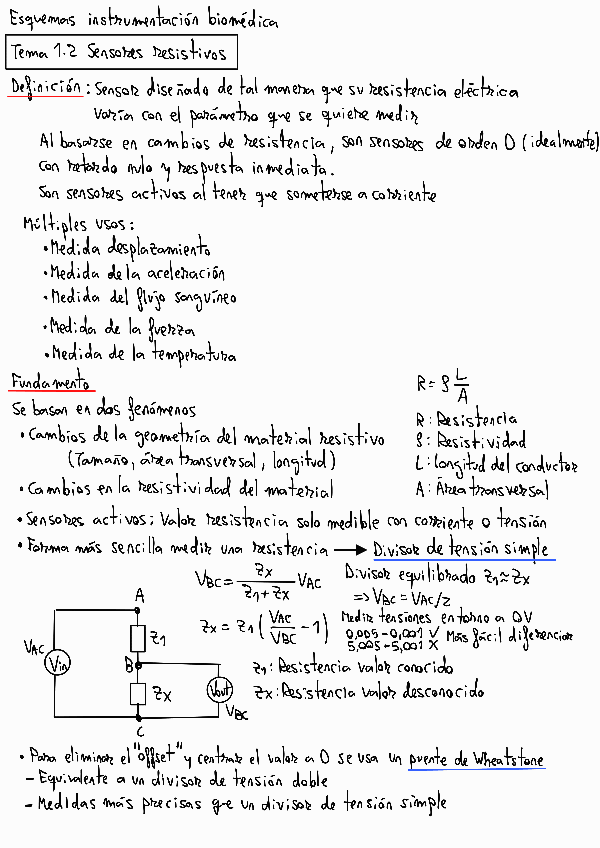 Esquemas instrumentación biomédica
Tema 1.2 Sensores resistivos
Definición: Sensor diseñado de tal manera que su resistencia eléctrica
varía con el parámetro que se quiere medir
Al basarse en cambios de resistencia, son sensores de orden 0 (idealmente)
con retardo nulo y respuesta inmediata.
Son sensores activos al tener que someterse a corriente
Múltiples usos:
• Medida desplazamiento
• Medida de la aceleración
• Medida del flujo sanguíneo
• Medida de la fuerza
• Medida de la temperatura
Fundamento
R = ρ L/A
Se basan en dos fenómenos
R: Resistencia
• Cambios de la geometría del material resistivo
ρ: Resistividad
(Tamaño, área transversal, longitud)
L: longitud del conductor
• Cambios en la resistividad del material
A: Área transversal
• Sensores activos: Valor resistencia solo medible con corriente o tensión
• Forma más sencilla medir una resistencia → Divisor de tensión simple
VBC = Zx/(Z1+Zx) VAC
Divisor equilibrado Z1≈Zx
=> VBC = VAC/2
Zx = Z1 (VAC/VBC − 1)
Medir tensiones entorno a 0V
0,005 - 0,001 V
5,005 - 5,001 X
Más fácil diferenciar
Z1: Resistencia valor conocido
Zx: Resistencia valor desconocido
A
VAC
Vin
Z1
B
Zx
Vout
VBC
C
• Para eliminar el "offset" y centrar el valor a 0 se usa un puente de Wheatstone
- Equivalente a un divisor de tensión doble
- Medidas más precisas que un divisor de tensión simple